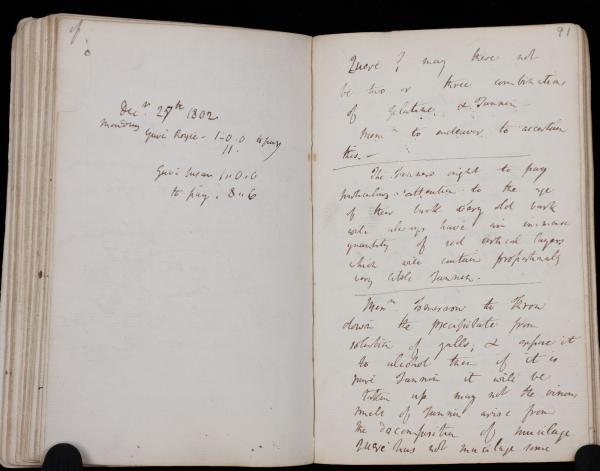 Dec.r 27th 1802
Monday Gave Rosie - 1-0.0 to pay
11.
Gave Susan 1.0.0
to pay. 8.6
91
Quere? may there not
be two or three combinations
of gelatine, & Tannin
Mem.m to endeavor to ascertain
this. —
The Tanners ought to pay
particular attention to the age
of their bark Very old bark
will always have an immense
quantity of red cortical layers
which will contain proportionally
very little Tannin. -
Mem.m Tomorrow to throw
down the precipitate from
solution of galls, & expose it
to alcohol then if it is
pure Tannin it will be
taken up may not the vinous
smell of Tannin arise from
the decomposition of mucilage
Quere has not mucilage some